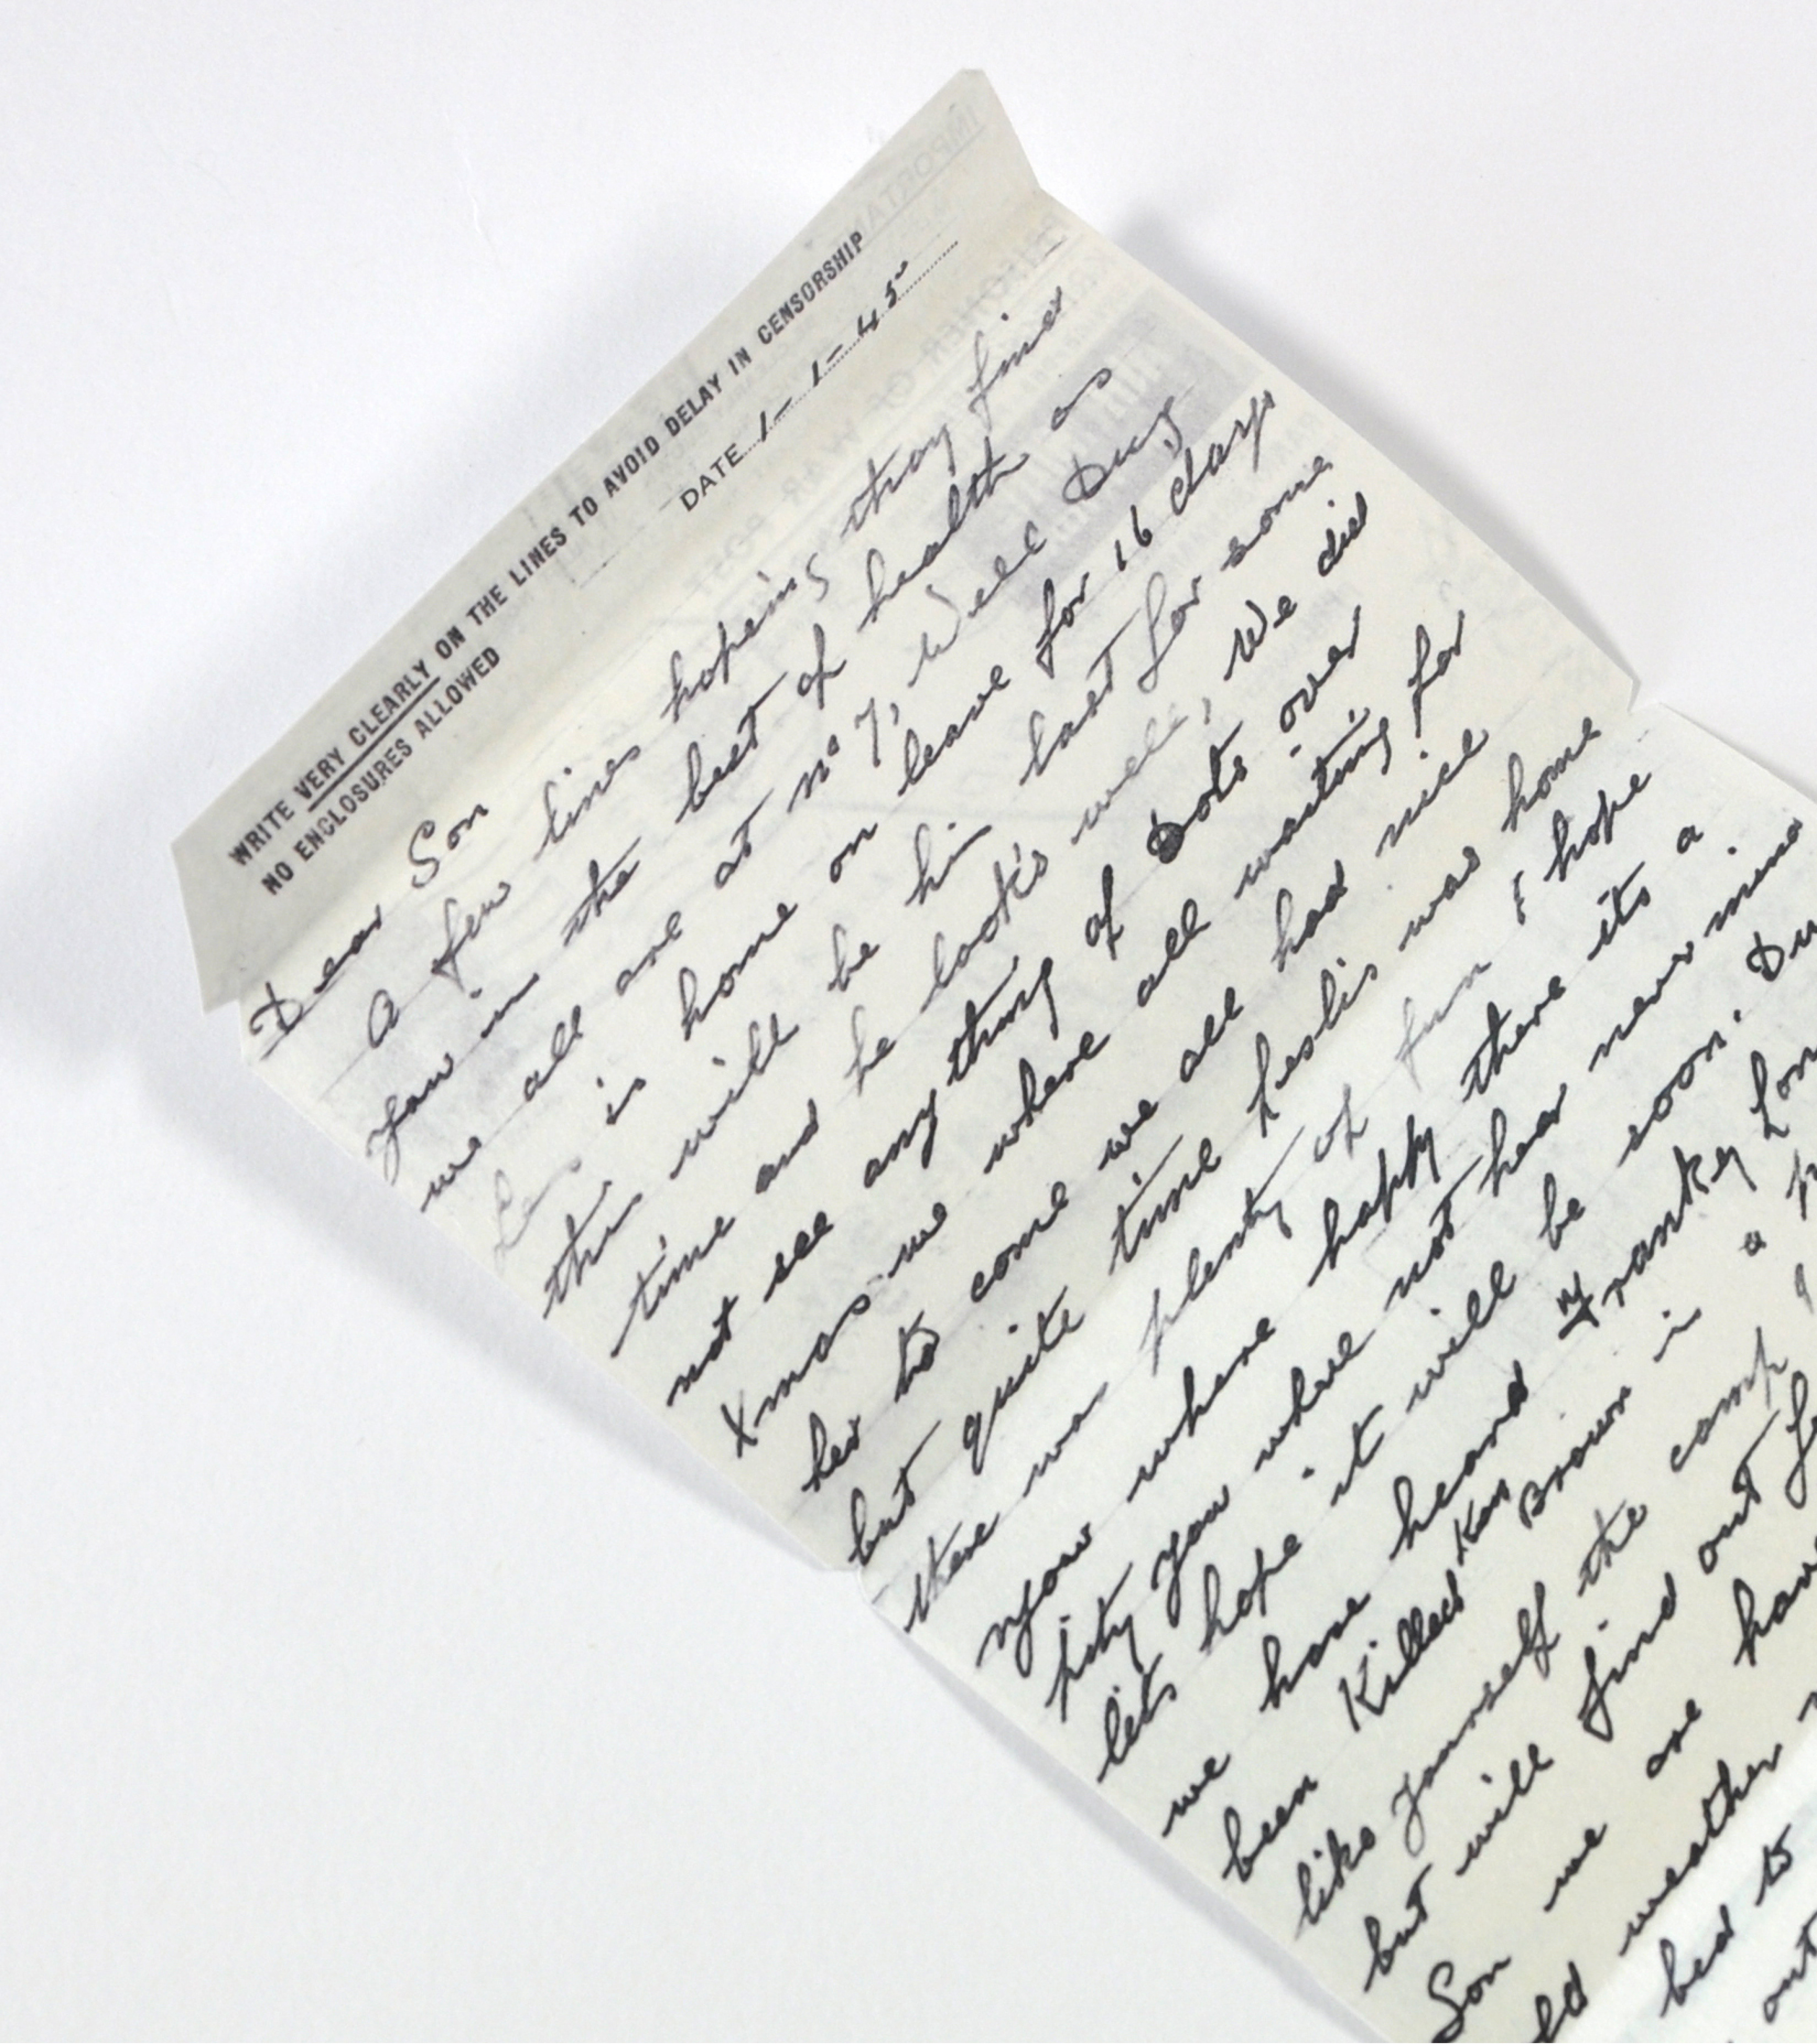 WRITE VERY CLEARLY ON THE LINES TO AVOID DELAY IN CENSORSHIP
NO ENCLOSURES ALLOWED
DATE 1-1-45
Dear Son
A few lines hoping they find
you in the best of health as
we all are at no 7, Well Dug
Les is home on leave for 16 days
this will be his last for some
time and he look's well, We did
not see anything of Dots over
Xmas we where all waiting for
her to come we all had nice
but quite time Leslis was home
there was plenty of fun & hope
you where happy there its a
pity you where not hear never mind
lets hope it will be soon.
we have heard Franky
been Killed Ken Brown is a
like yourself the camp
but will find out
Son we are
weather
bed to
out